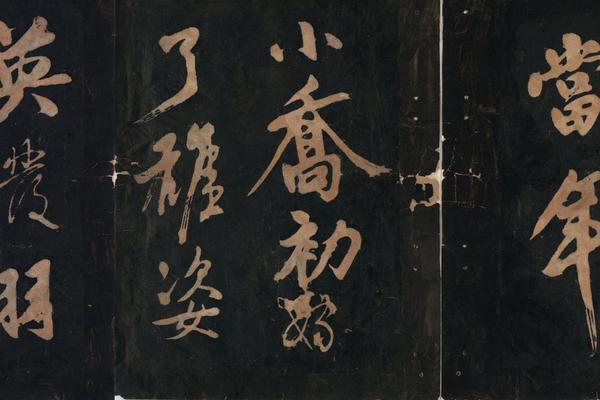 當年
小喬初嫁
了雄姿
英發羽